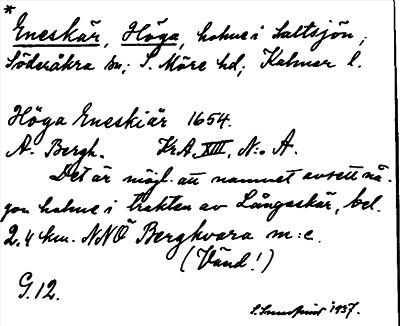 *
Eneskär, Höga, holme i Saltsjön;
Söderåkra sn; S. Möre hd; Kalmar l.
Höga Eneskiär 1654.
A. Bergh. KrA, XIII, N:o A.
Det är möjl. att namnet avsett nå-
gon holme i trakten av Långaskär, bel.
2,4 km. NNÖ Bergkvara m:e.
(Vänd!)
G.12.
1937.